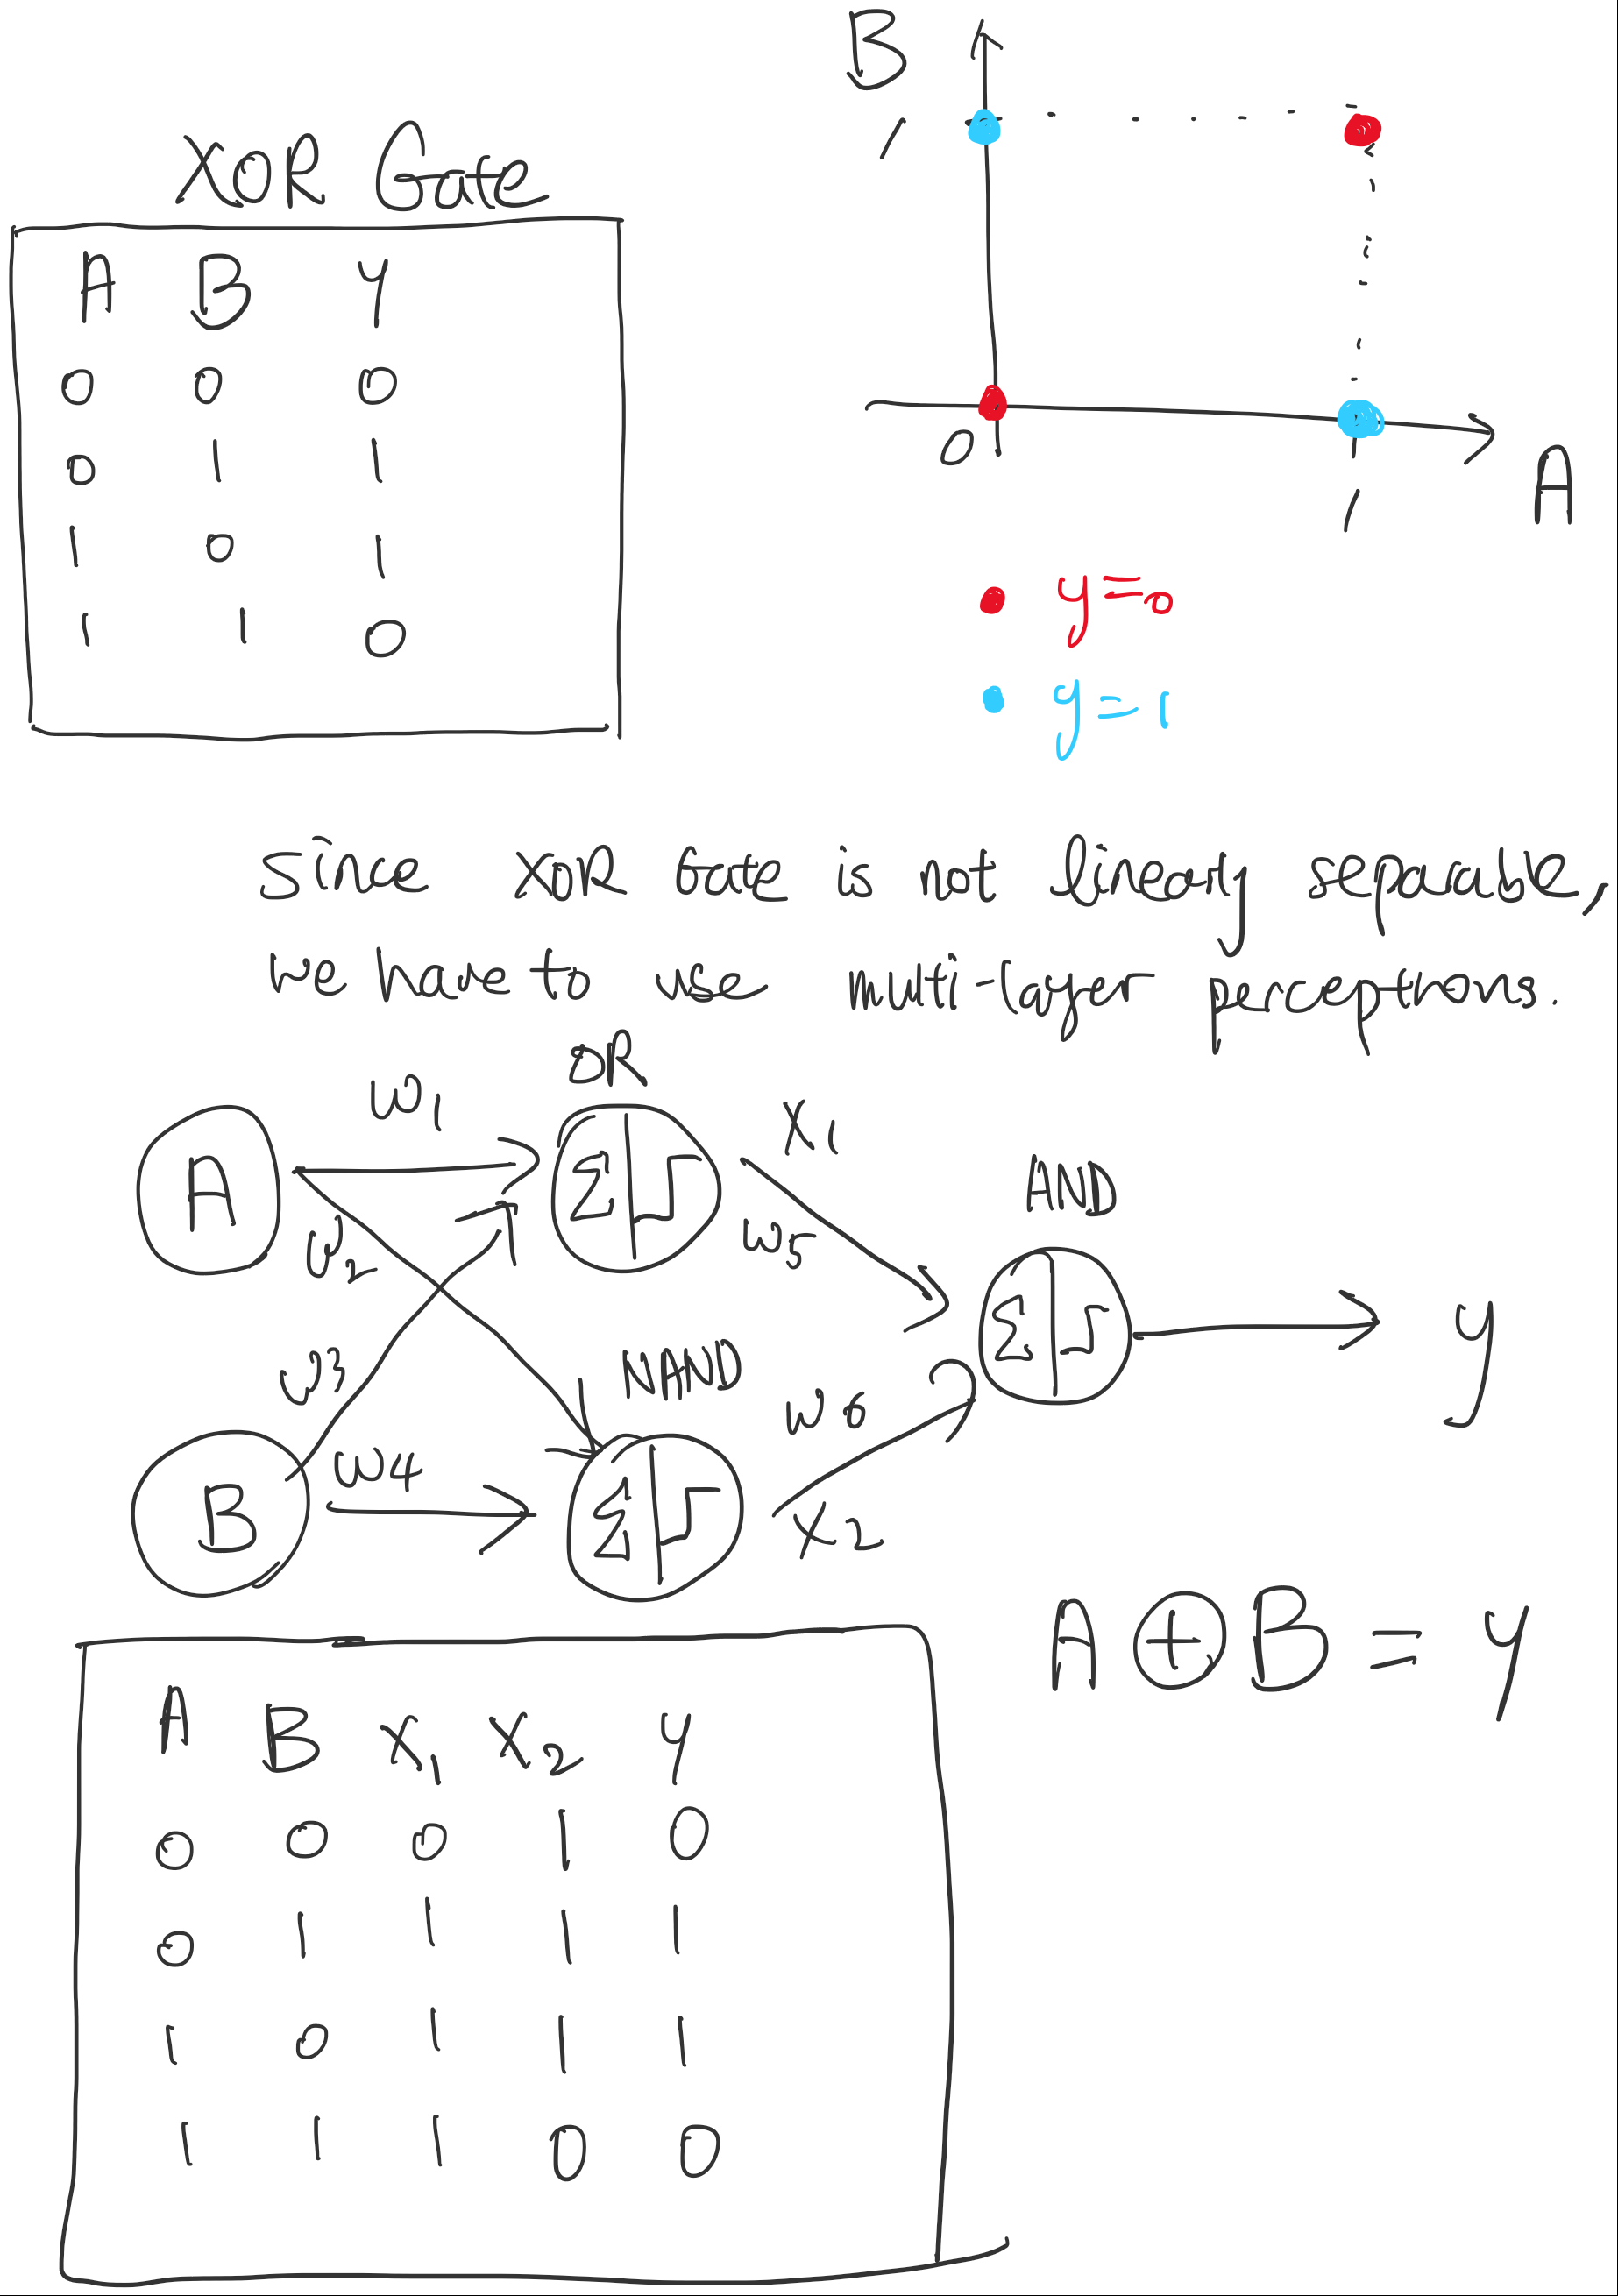 XOR Gate
A B Y
0 0 0
0 1 1
1 0 1
1 1 0
B
1
0
1
A
y=0
y=1
since XOR Gate is not lineary separable,
we have to use multi-layer perceptrons.
A
B
w1
w2
w3
w4
OR
Σ
NAND
Σ
X1
w5
w6
X2
AND
Σ
y
A ⊕ B = y
A B X1 X2 Y
0 0 0 1 0
0 1 1 1 1
1 0 1 1 1
1 1 1 0 0